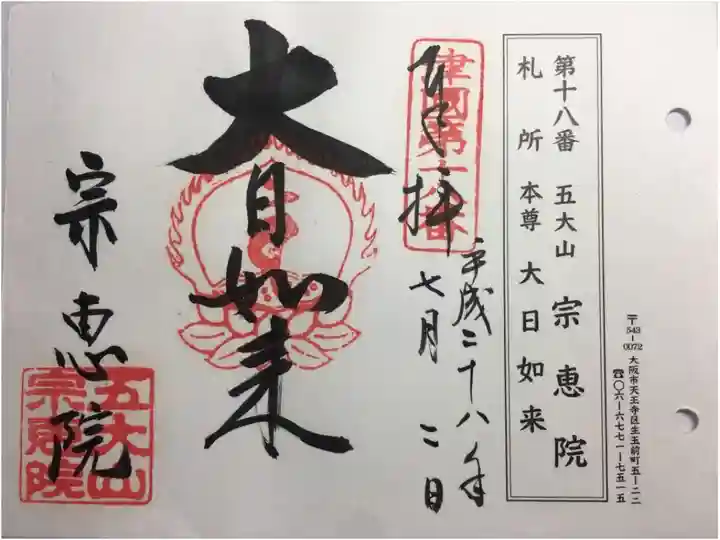 〒543-0072 大阪市天王寺区生玉前町五-二二
☎〇六-六七七一-七五一五
第十八番 五大山 宗恵院
札所本尊 大日如来
奉拝
平成二十八年
七月 二日
大日如来
宗恵院
五大山
宗恵院